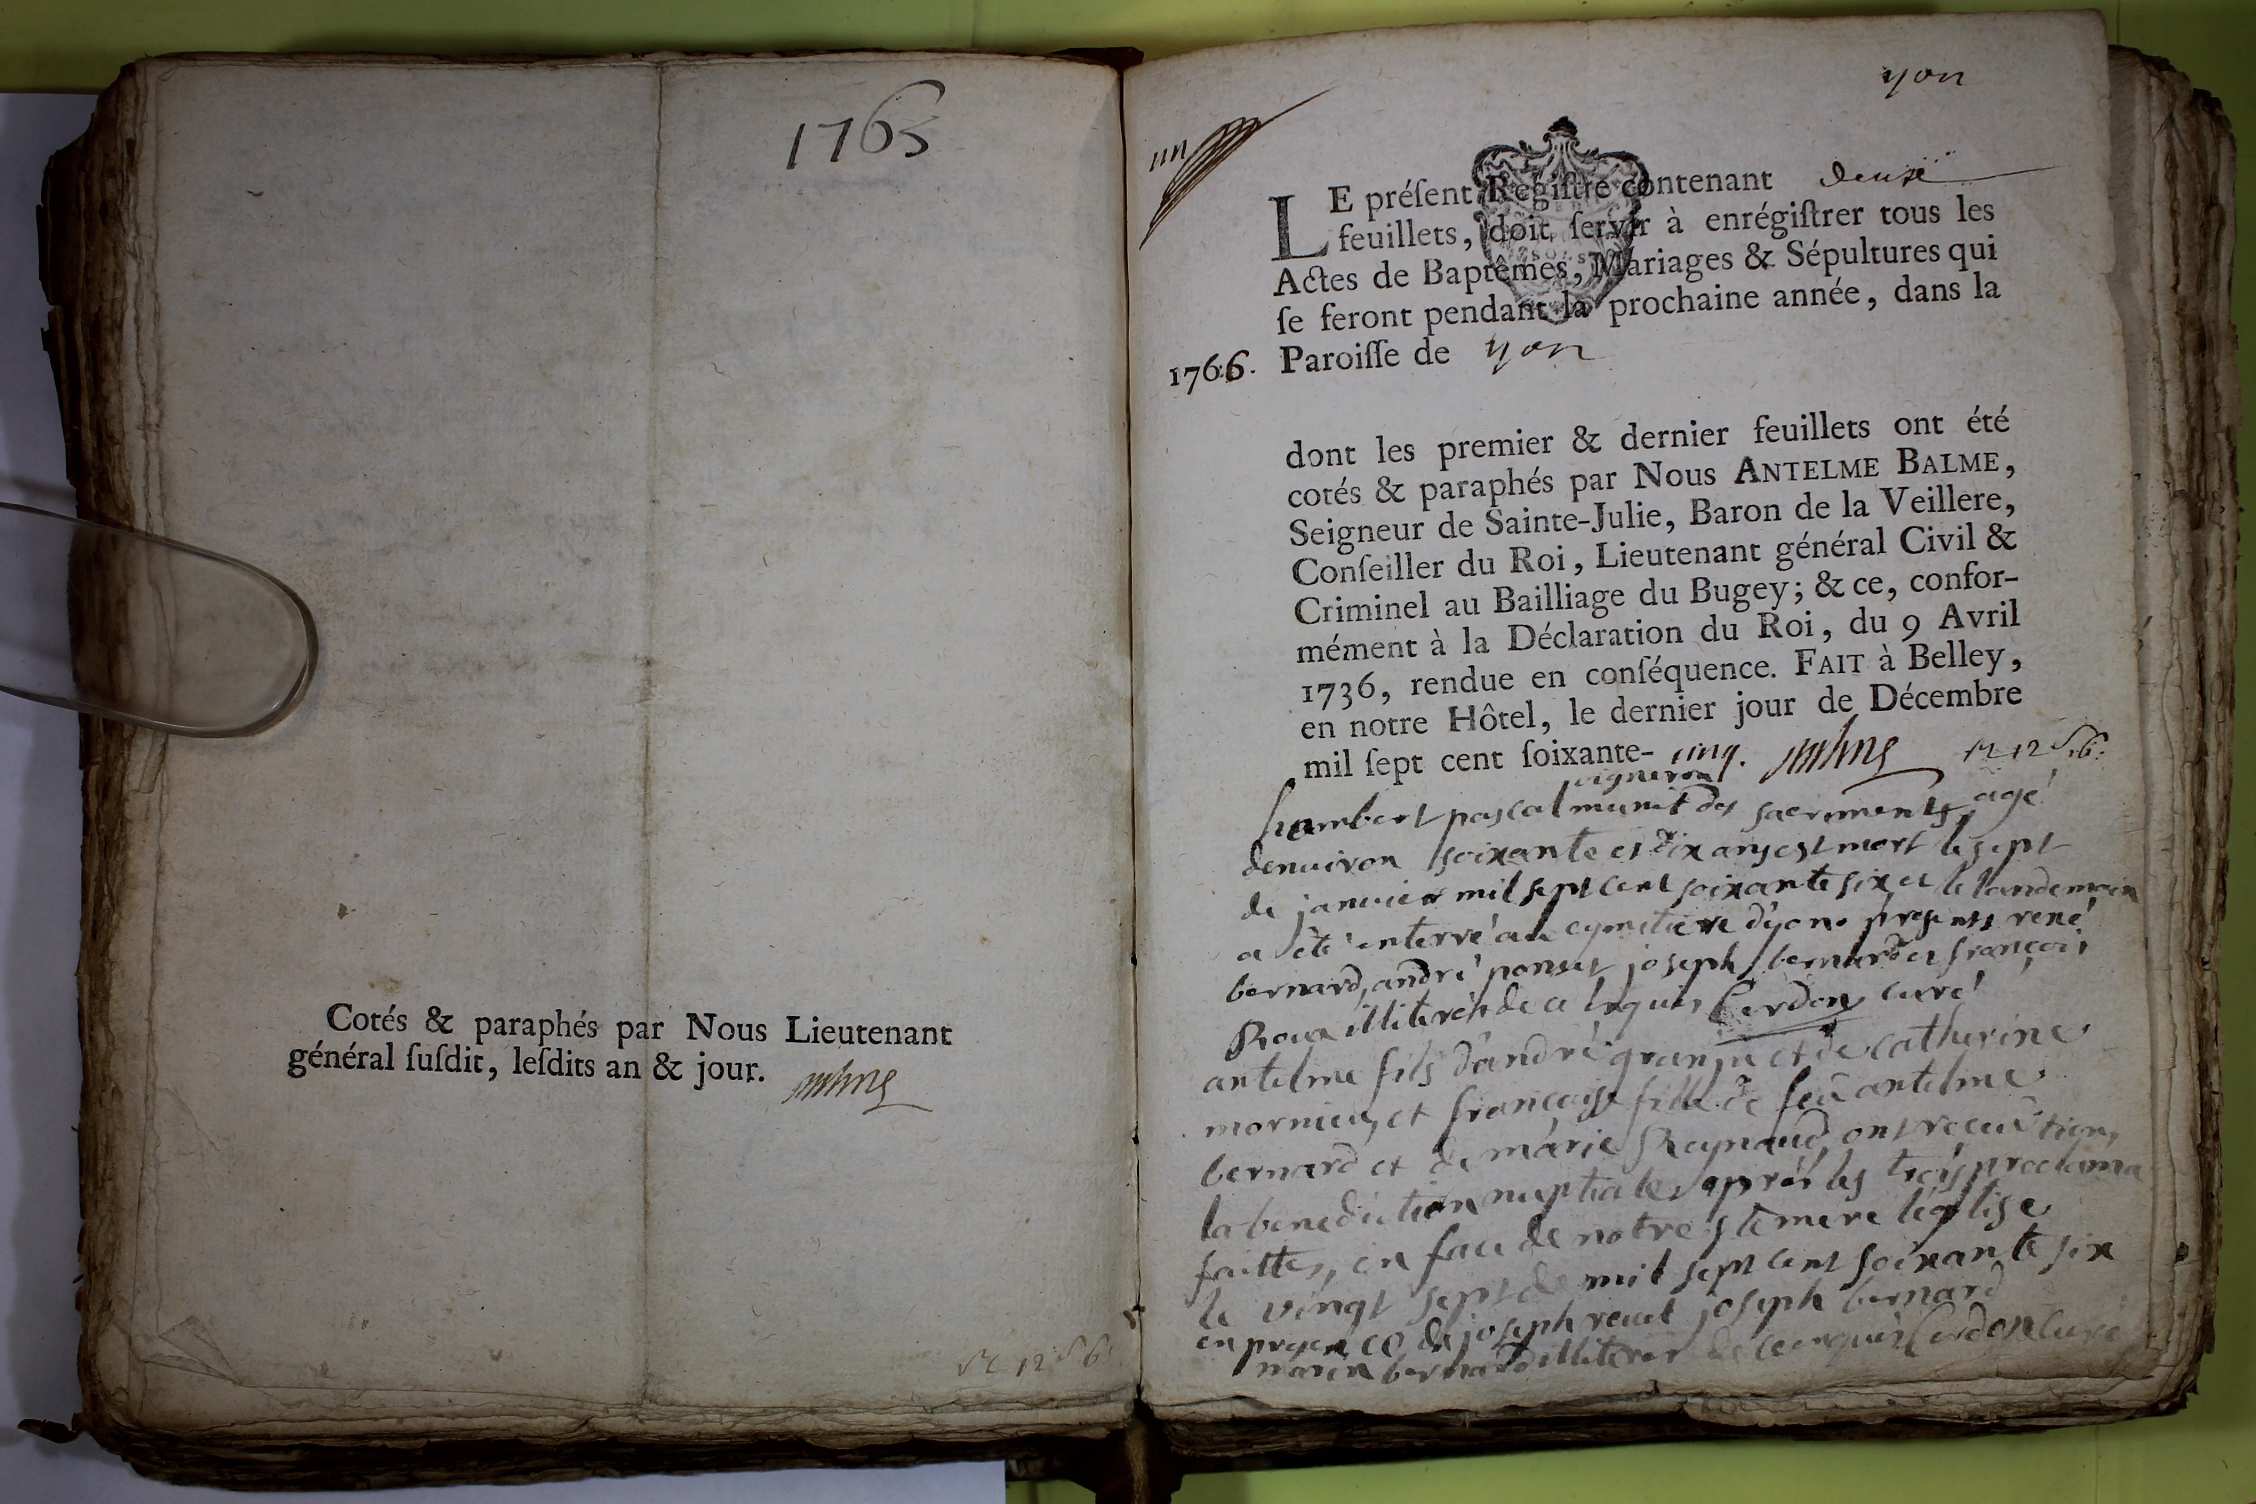 1763
Cotés & paraphés par Nous Lieutenant
général ſuſdit, leſdits an & jour.
yon
un
LE préſent Régiſtre contenant deuze
feuillets, doit ſervir à enrégiſtrer tous les
Actes de Baptêmes, Mariages & Sépultures qui
ſe feront pendant la prochaine année, dans la
1766. Paroiſſe de yon
dont les premier & dernier feuillets ont été
cotés & paraphés par Nous ANTELME BALME,
Seigneur de Sainte-Julie, Baron de la Veillere,
Conſeiller du Roi, Lieutenant général Civil &
Criminel au Bailliage du Bugey; & ce, confor-
mément à la Déclaration du Roi, du 9 Avril
1736, rendue en conſéquence. FAIT à Belley,
en notre Hôtel, le dernier jour de Décembre
mil ſept cent ſoixante- cinq.
vigneron
humbert pascal munit des sacrements agé
denuiron soixante et dix ans est mort le sept
de januier mil sept cent soixante six et le landemain
a été enterré au cymitiere d'yon. presents rené
bernard, andré ponset joseph bernard et françois
Roux illiterés de ce enquis Cerdon curé
antelme fils d'andré granju et de catherine
mornieu, et françoise fille de feu antelme
bernard et de marie Reynaud ont receu
la benediction nuptiale, après les trois proclamations
faittes, en face de notre ste mere léglise
le vingt sept de mil sept cent soixante six
en presence de joseph reuet joseph bernard
marin bernard illiterés de ce enquis Cerdon curé